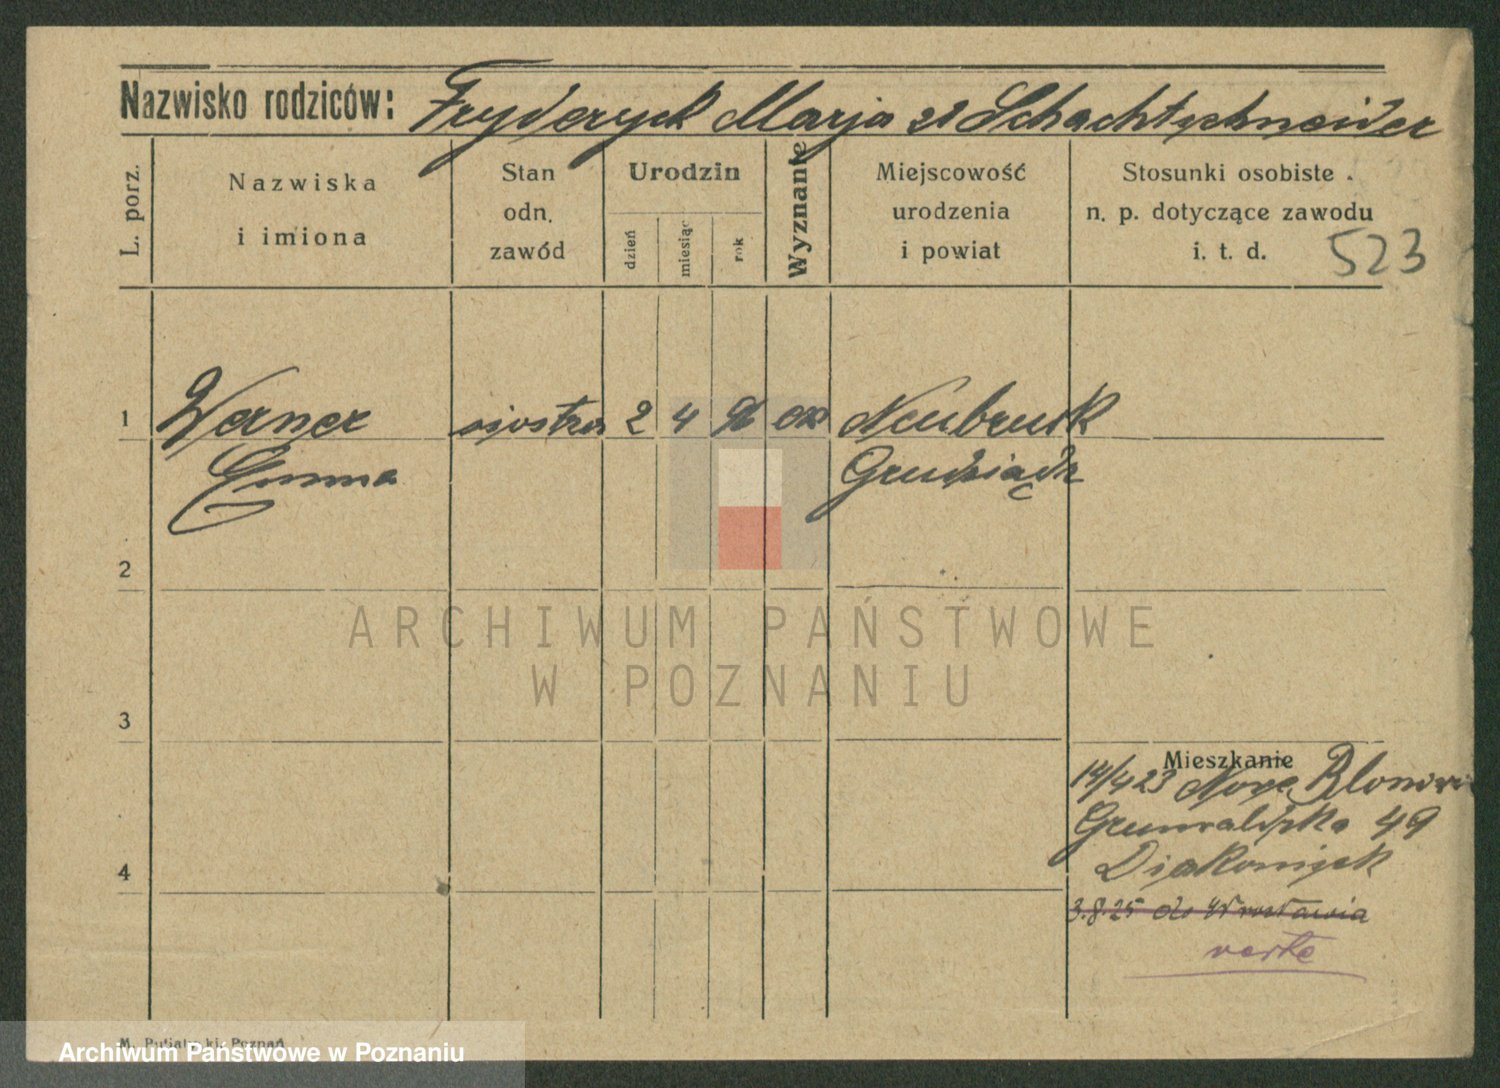 Nazwisko rodziców: Fryderyck Marja zd Schachtschneider
L. porz.
Nazwiska
i imiona
Stan
odn.
zawód
Urodzin
dzień
miesiąc
rok
Wyznanie
Miejscowość
urodzenia
i powiat
Stosunki osobiste
n. p. dotyczące zawodu
i. t. d.
523
1 Werner siostra 2 4 96 ew Neubruck
Emma Grudziądz
2
3
4
ARCHIWUM PAŃSTWOWE
W POZNANIU
Mieszkanie
14/4 23 Nowe
Grunwaldzka 49
Diakonisek
3.8.25 do Wrocławia
verte
M. Putiatycki, Poznań
Archiwum Państwowe w Poznaniu